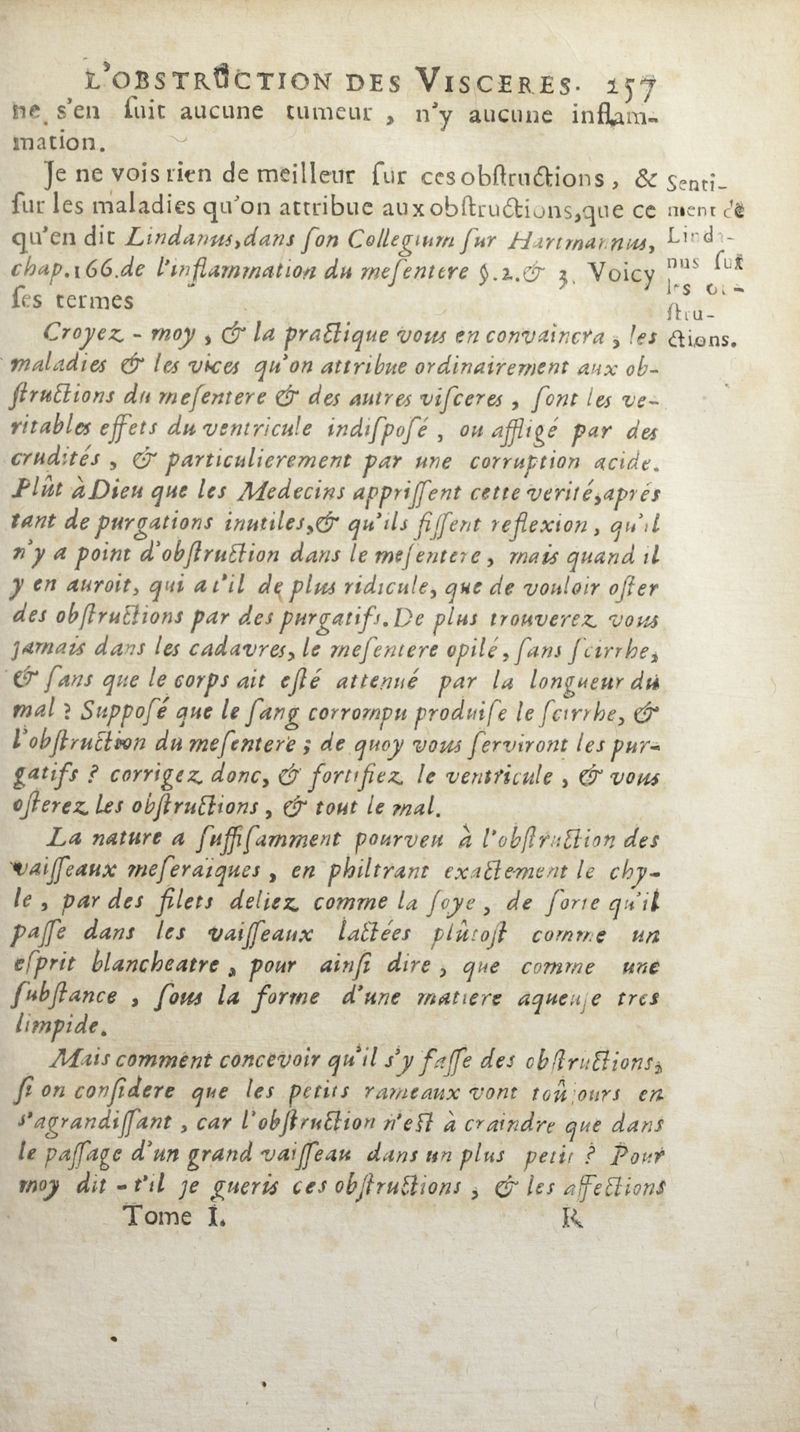 L'OBSTRUCTION DES VISCERES. 157
ne s'en ſuit aucune tumeur , n'y aucune inflam-
mation.
Je ne vois rien de meilleur ſur ces obſtructions , &
ſur les maladies qu'on attribue aux obſtructions,que ce
qu'en dit Lindanus,dans ſon Collegium ſur Hartmannus,
chap.166.de l'inflammation du meſentere §.2.& 3. Voicy
ſes termes
Senti-
ment de
Linda-
nus ſur
les ob-
ſtru-
ctions.
Croyez - moy , & la practique vous en convaincra , les
maladies & les vices qu'on attribue ordinairement aux ob-
ſtructions du meſentere & des autres viſceres , ſont les ve-
ritables effets du ventricule indiſpoſé , ou affligé par des
crudités , & particulierement par une corruption acide.
Plût à Dieu que les Medecins appriſſent cette verité,aprés
tant de purgations inutiles,& qu'ils fiſſent reflexion , qu'il
n'y a point d'obſtruction dans le meſentere , mais quand il
y en auroit, qui a t'il de plus ridicule, que de vouloir oſter
des obſtructions par des purgatifs. De plus trouverez vous
jamais dans les cadavres, le meſentere opilé, ſans ſcirrhe,
& ſans que le corps ait eſté attenué par la longueur du
mal ? Suppoſé que le ſang corrompu produiſe le ſcirrhe, &
l'obſtruction du meſentere ; de quoy vous ſerviront les pur-
gatifs ? corrigez donc, & fortifiez le ventricule , & vous
oſterez les obſtructions , & tout le mal.
La nature a ſuffiſamment pourveu à l'obſtruction des
vaiſſeaux meſeraïques , en philtrant exactement le chy-
le , par des filets deliez comme la ſoye , de ſorte qu'il
paſſe dans les vaiſſeaux lactées plûtoſt comme un
eſprit blancheatre , pour ainſi dire , que comme une
ſubſtance , ſous la forme d'une matiere aqueuſe tres
limpide.
Mais comment concevoir qu'il s'y faſſe des obſtructions,
ſi on conſidere que les petits rameaux vont toûjours en
s'agrandiſſant , car l'obſtruction n'eſt à craindre que dans
le paſſage d'un grand vaiſſeau dans un plus petit ? Pour
moy dit - t'il je gueris ces obſtructions , & les affections
Tome I. R